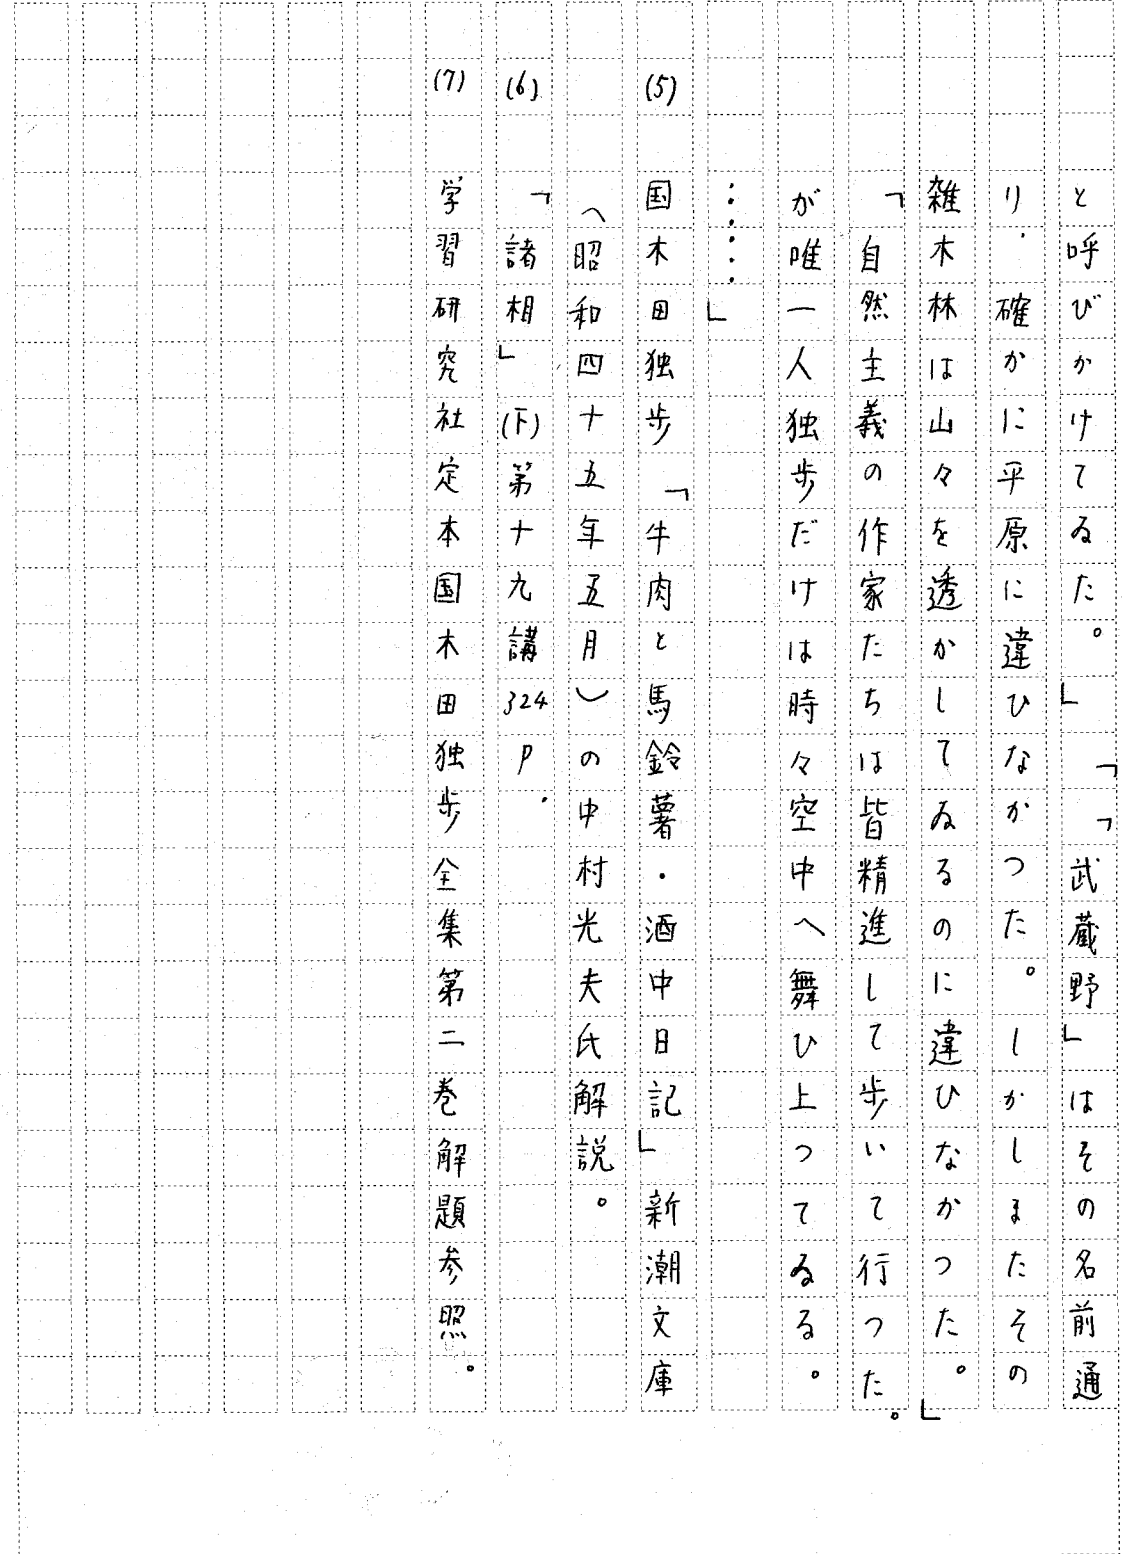 と呼びかけてゐた。」「「武蔵野」はその名前通
り、確かに平原に違ひなかつた。しかしまたその
雑木林は山々を透かしてゐるのに違ひなかつた。」
「自然主義の作家たちは皆精進して歩いて行つた。
が唯一人独歩だけは時々空中へ舞ひ上つてゐる。
……」
(5) 国木田独歩「牛肉と馬鈴薯・酒中日記」新潮文庫
(昭和四十五年五月)の中村光夫氏解説。
(6) 「諸相」(下)第十九講324P.
(7) 学習研究社定本国木田独歩全集第二巻解題参照。